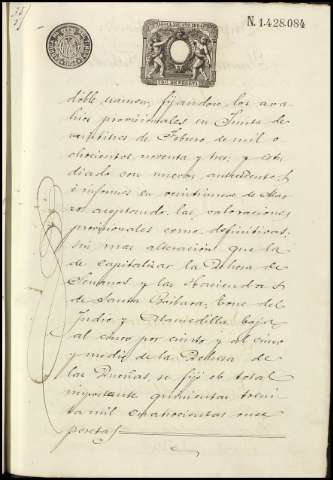 N. 1.428.084
doble tramos, fijandose los ava
luos provisionales en Junta de
veintitres de Febrero de mil o
chocientos noventa y tres, y estu
diado con nuevos antecedentes,
é informes en veintiuno de Mar
zo aceptando las valoraciones
provisionales como definitivas,
sin mas alteración que la
de capitalizar la Dehesa de
y las Haciendas
de Santa Bárbara, Torre del
Indio y Alamedilla, baja
al cinco por ciento y al cinco
y medio de la Dehesa de
las Dueñas, se fijó el total
importante quinientas trein
ta mil cuatrocientas once
pesetas